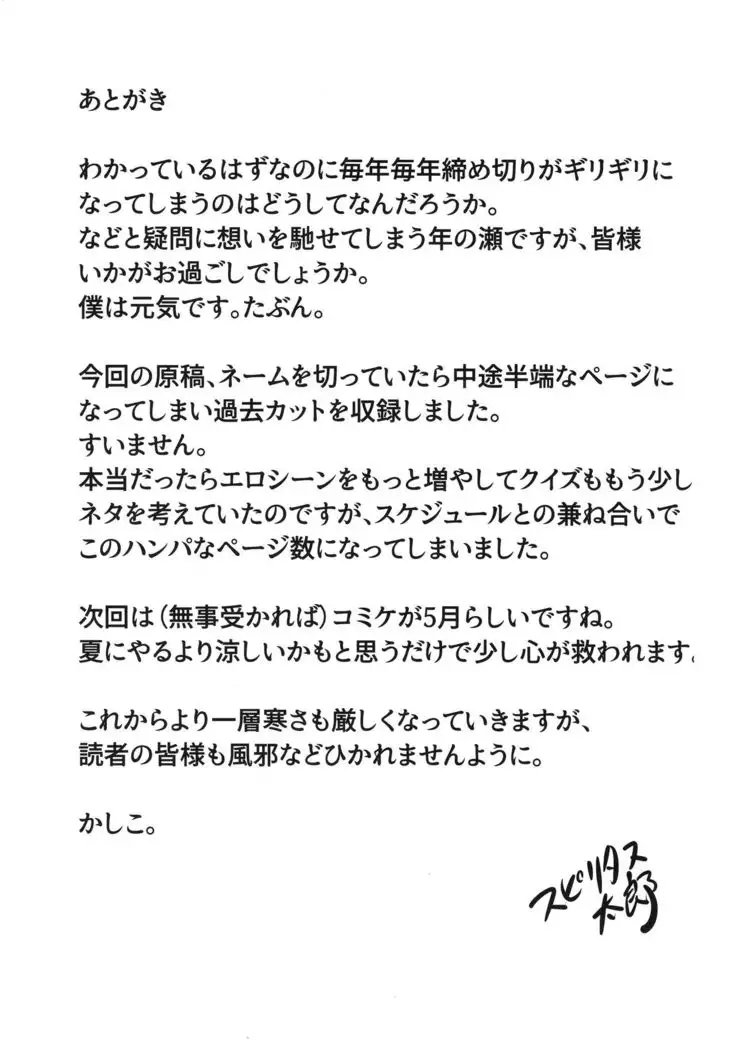 あとがき
わかっているはずなのに毎年毎年締め切りがギリギリに
なってしまうのはどうしてなんだろうか。
などと疑問に想いを馳せてしまう年の瀬ですが、皆様
いかがお過ごしでしょうか。
僕は元気です。たぶん。
今回の原稿、ネームを切っていたら中途半端なページに
なってしまい過去カットを収録しました。
すいません。
本当だったらエロシーンをもっと増やしてクイズももう少し
ネタを考えていたのですが、スケジュールとの兼ね合いで
このハンパなページ数になってしまいました。
次回は(無事受かれば)コミケが5月らしいですね。
夏にやるより涼しいかもと思うだけで少し心が救われます。
これからより一層寒さも厳しくなっていきますが、
読者の皆様も風邪などひかれませんように。
かしこ。
スピリタス
太郎